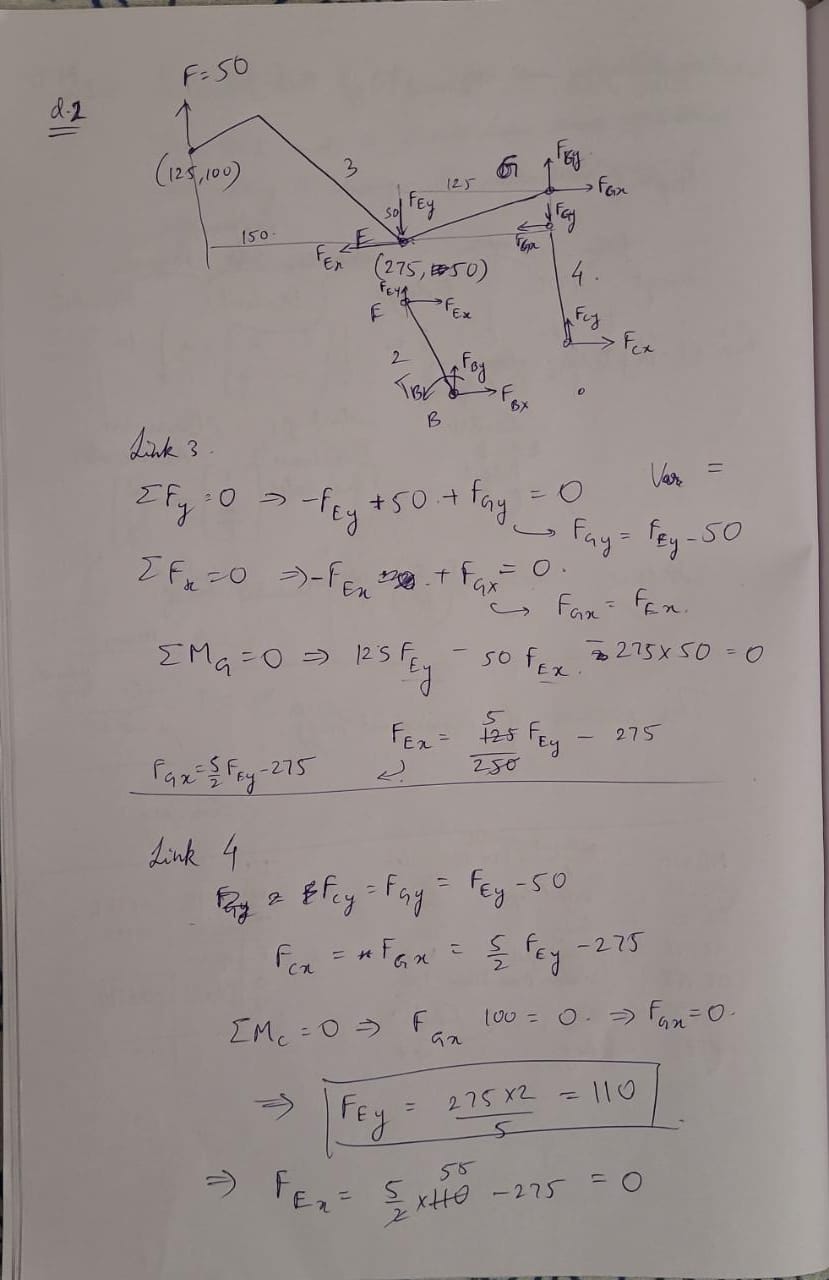 F=50
Q.2
(125,100)
3
G
F_Gy
125
F_Gx
50
F_Ey
F_Gy
150
E
F_Ex
F_Gx
(275, 50)
4.
F_Ey
E
F_Ex
F_Cy
F_Cx
2
F_By
T_B
F_Bx
B
Link 3.
ΣF_y=0 ⇒ -F_Ey +50 + F_Gy = 0
Var =
↪ F_Gy = F_Ey - 50
ΣF_x=0 ⇒ -F_Ex + F_Gx = 0.
↪ F_Gx = F_Ex.
ΣM_G=0 ⇒ 125 F_Ey - 50 F_Ex - 275×50 = 0
F_Ex = 5/2 F_Ey - 275
F_Gx = 5/2 F_Ey - 275
Link 4
F_Cy = F_Gy = F_Ey - 50
F_Cx = F_Gx = 5/2 F_Ey - 275
ΣM_C = 0 ⇒ F_Gx 100 = 0. ⇒ F_Gx = 0.
⇒ F_Ey = 275×2/5 = 110
⇒ F_Ex = 5/2 × 110 55 - 275 = 0